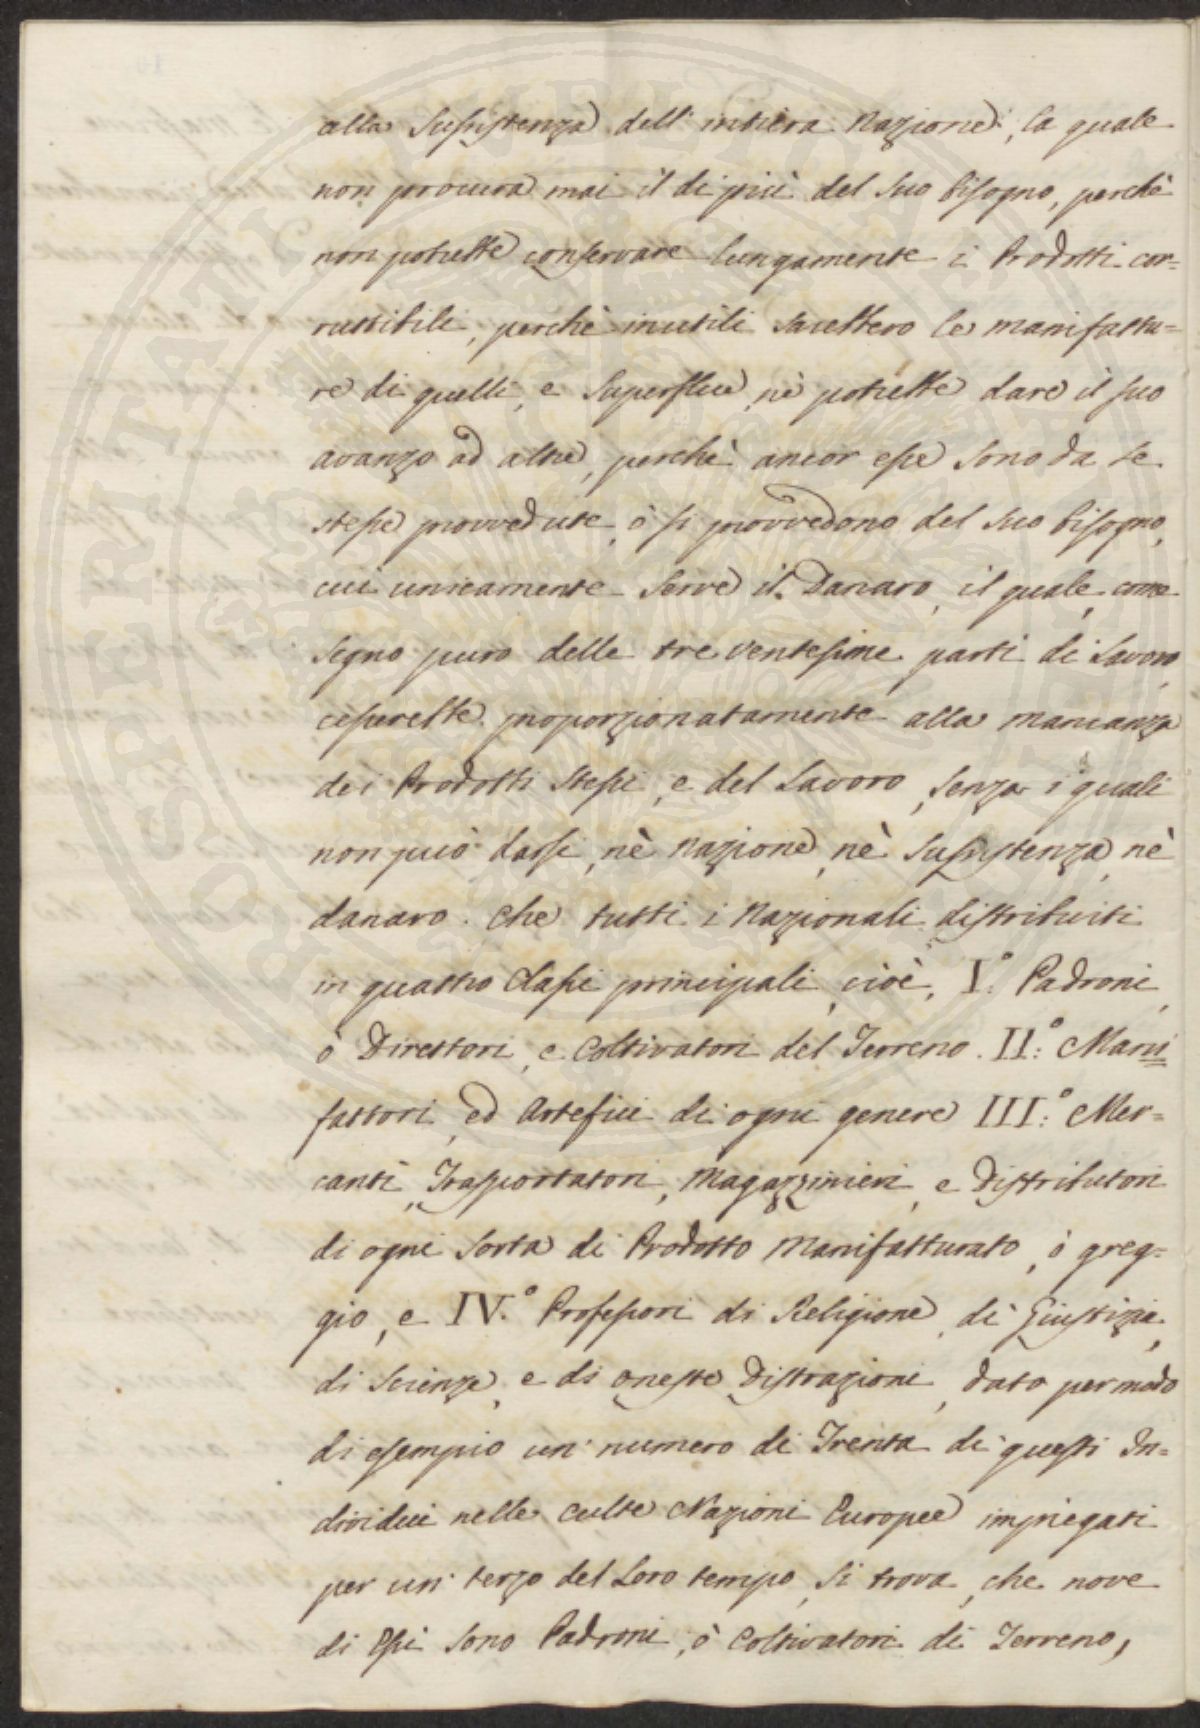 alla Sussistenza dell' intiera Nazione, la quale
non procura mai il di più del suo bisogno, perchè
non potrebbe conservare lungamente i Prodotti cor=
ruttibili, perchè inutili sarebbero le manifattu=
re di quelli, e superflue, nè potrebbe dare il suo
avanzo ad altre, perchè ancor esse sono da se
stesse provvedute, ò si provvedono del suo bisogno,
cui unicamente serve il Danaro, il quale, come
segno puro delle tre ventesime parti di Lavoro,
cesserebbe proporzionatamente alla mancanza
dei Prodotti stessi, e del Lavoro, senza i quali
non può darsi, nè Nazione, nè Sussistenza, nè
danaro. Che tutti i Nazionali distribuiti
in quattro Classi principali, cioè, I.° Padroni,
ò Direttori, e Coltivatori del Terreno. II:° Mani
fattori, ed Artefici di ogni genere III:° Mer=
canti, Trasportatori, Magazzinieri, e Distributori
di ogni sorta di Prodotto Manifatturato, ò greg=
gio, e IV.° Professori di Religione, di Giustizia,
di Scienze, e di oneste Distrazioni, dato per modo
di esempio un' numero di Trenta di questi In=
dividui nelle culte Nazioni Europee impiegati
per un' terzo del Loro tempo, si trova, che nove
di Essi sono Padroni, ò Coltivatori di Terreno,
PROSPERITATI PUBLICAE